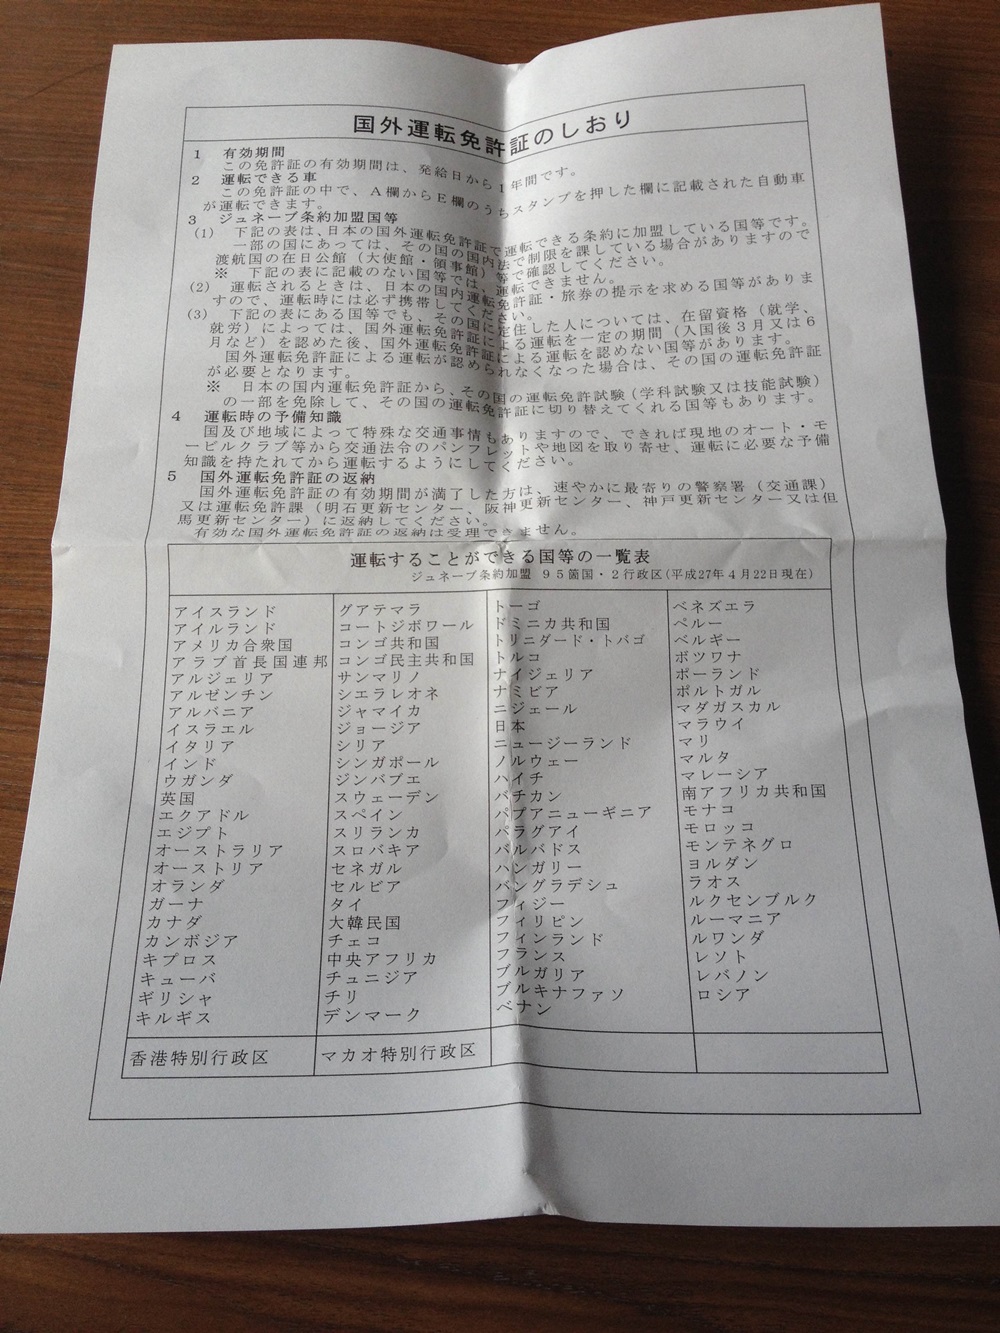 国外運転免許証のしおり
1 有効期間
この免許証の有効期間は、発給日から1年間です。
2 運転できる車
この免許証の中で、A欄からE欄のうちスタンプを押した欄に記載された自動車
が運転できます。
3 ジュネーブ条約加盟国等
(1) 下記の表は、日本の国外運転免許証で運転できる条約に加盟している国等です。
一部の国にあっては、その国の国内法で制限を課している場合がありますので
渡航国の在日公館(大使館・領事館)等で確認してください。
※ 下記の表に記載のない国等では、運転できません。
(2) 運転されるときは、日本の国内運転免許証・旅券の提示を求める国等がありま
すので、運転時には必ず携帯してください。
(3) 下記の表にある国等でも、その国に定住した人については、在留資格(就学、
就労)によっては、国外運転免許証による運転を一定の期間(入国後3月又は6
月など)を認めた後、国外運転免許証による運転を認めない国等があります。
国外運転免許証による運転が認められなくなった場合は、その国の運転免許証
が必要となります。
※ 日本の国内運転免許証から、その国の運転免許試験(学科試験又は技能試験)
の一部を免除して、その国の運転免許証に切り替えてくれる国等もあります。
4 運転時の予備知識
国及び地域によって特殊な交通事情もありますので、できれば現地のオート・モ
ービルクラブ等から交通法令のパンフレットや地図を取り寄せ、運転に必要な予備
知識を持たれてから運転するようにしてください。
5 国外運転免許証の返納
国外運転免許証の有効期間が満了した方は、速やかに最寄りの警察署(交通課)
又は運転免許課(明石更新センター、阪神更新センター、神戸更新センター又は但
馬更新センター)に返納してください。
有効な国外運転免許証の返納は受理できません。
運転することができる国等の一覧表
ジュネーブ条約加盟 95箇国・2行政区(平成27年4月22日現在)
アイスランド
アイルランド
アメリカ合衆国
アラブ首長国連邦
アルジェリア
アルゼンチン
アルバニア
イスラエル
イタリア
インド
ウガンダ
英国
エクアドル
エジプト
オーストラリア
オーストリア
オランダ
ガーナ
カナダ
カンボジア
キプロス
キューバ
ギリシャ
キルギス
グアテマラ
コートジボワール
コンゴ共和国
コンゴ民主共和国
サンマリノ
シエラレオネ
ジャマイカ
ジョージア
シリア
シンガポール
ジンバブエ
スウェーデン
スペイン
スリランカ
スロバキア
セネガル
セルビア
タイ
大韓民国
チェコ
中央アフリカ
チュニジア
チリ
デンマーク
トーゴ
ドミニカ共和国
トリニダード・トバゴ
トルコ
ナイジェリア
ナミビア
ニジェール
日本
ニュージーランド
ノルウェー
ハイチ
バチカン
パプアニューギニア
パラグアイ
バルバドス
ハンガリー
バングラデシュ
フィジー
フィリピン
フィンランド
フランス
ブルガリア
ブルキナファソ
ベナン
ベネズエラ
ペルー
ベルギー
ボツワナ
ポーランド
ポルトガル
マダガスカル
マラウイ
マリ
マルタ
マレーシア
南アフリカ共和国
モナコ
モロッコ
モンテネグロ
ヨルダン
ラオス
ルクセンブルク
ルーマニア
ルワンダ
レソト
レバノン
ロシア
香港特別行政区
マカオ特別行政区